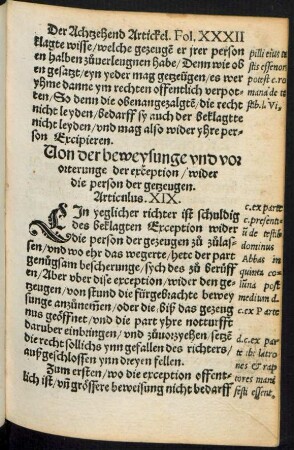 Der Achtzehend Artickel. Fol. XXXII
klagte wisse/welche gezeugē er jrer person
en halben zůuerleugnen habe/Denn wie ob
en gesatzt/eyn yeder mag gezeügen/es wer
yhme danne ym rechten offentlich verpot-
ten/So denn die obenangezalgtē/die recht
nicht leyden/bedarff sy auch der beklagtte
nicht leyden/vnd mag also wider yhre per-
son Excipieren.
Von der beweysunge vnd vor
orterunge der exception/wider
die person der gezeugen.
Articulus. XIX.
EIn yeglicher richter ist schuldig
des beklagten Exception wider
die person der gezeugen zů zůlas-
sen/vnd wo ehr das wegerte/hete der part
genůgsam bescherunge/sych des zů berůff
en/Aber vber dise exception/wider den ge-
zeügen/von stund die fürgebrachte bewey
sunge anzůnemen/oder die biß das gezeug
nus geöffnet/vnd die part yhre notturfft
darüber einbringen/vnd zůuorzyehen/setzē
die recht söllichs ynn gefallen des richters/
außgeschlossen ynn dreyen fellen.
Zum ersten/wo die exception offent-
lich ist/vn̄ grössere beweisung nicht bedarff
pilli eius te
stis essenon
potest c. ro
mana de te
stib. l. Vi,
c. ex parte
c. presenti-
ū de testib.
dominus
Abbas in
quinta co
lūna post
medium d.
c. ex Parte
d. c. ex par
te ibi latro
nes & rap
tores mani
festi essent.